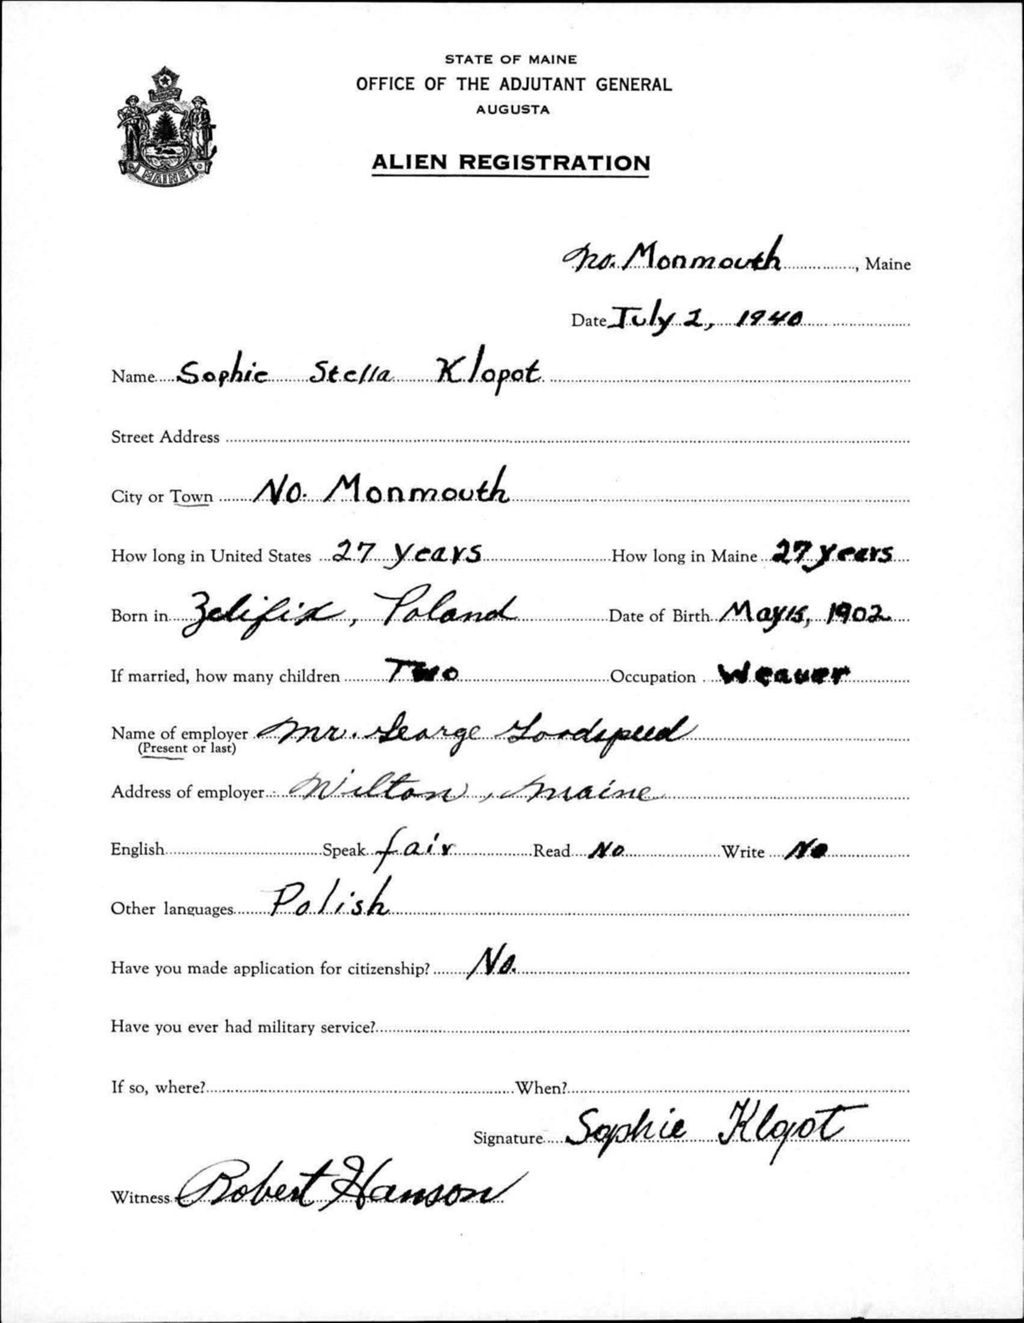 STATE OF MAINE
OFFICE OF THE ADJUTANT GENERAL
AUGUSTA
MAINE
ALIEN REGISTRATION
No. Monmouth, Maine
Date July 2, 1940
Name Sophie Stella Klopot
Street Address
City or Town No. Monmouth
How long in United States 27 years How long in Maine 27 years
Born in Zelifix, Poland Date of Birth May 15, 1902
If married, how many children Two Occupation Weaver
Name of employer Mr. George Goodspeed
(Present or last)
Address of employer Wilton, Maine
English Speak fair Read No Write No
Other languages Polish
Have you made application for citizenship? No.
Have you ever had military service?
If so, where? When?
Signature Sophie Klopot
Witness Robert Hanson